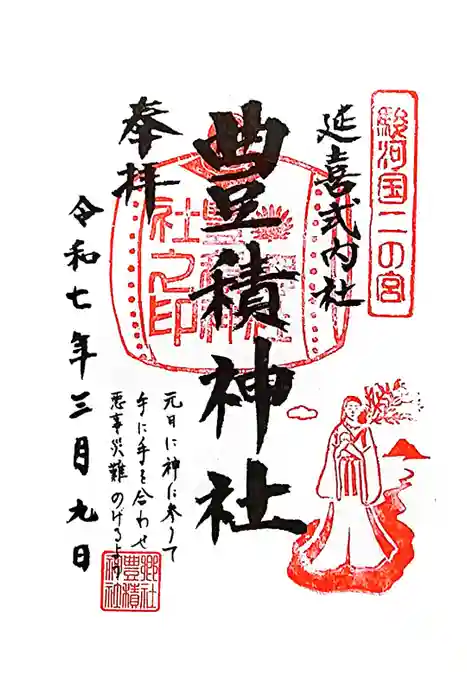 駿河国二の宮
延喜式内社
豊積神社
奉拝
令和七年三月九日
元日に神に参りて
手に手を合わせ
悪事災難のげるよう
社之印
郷社
豊積
神社